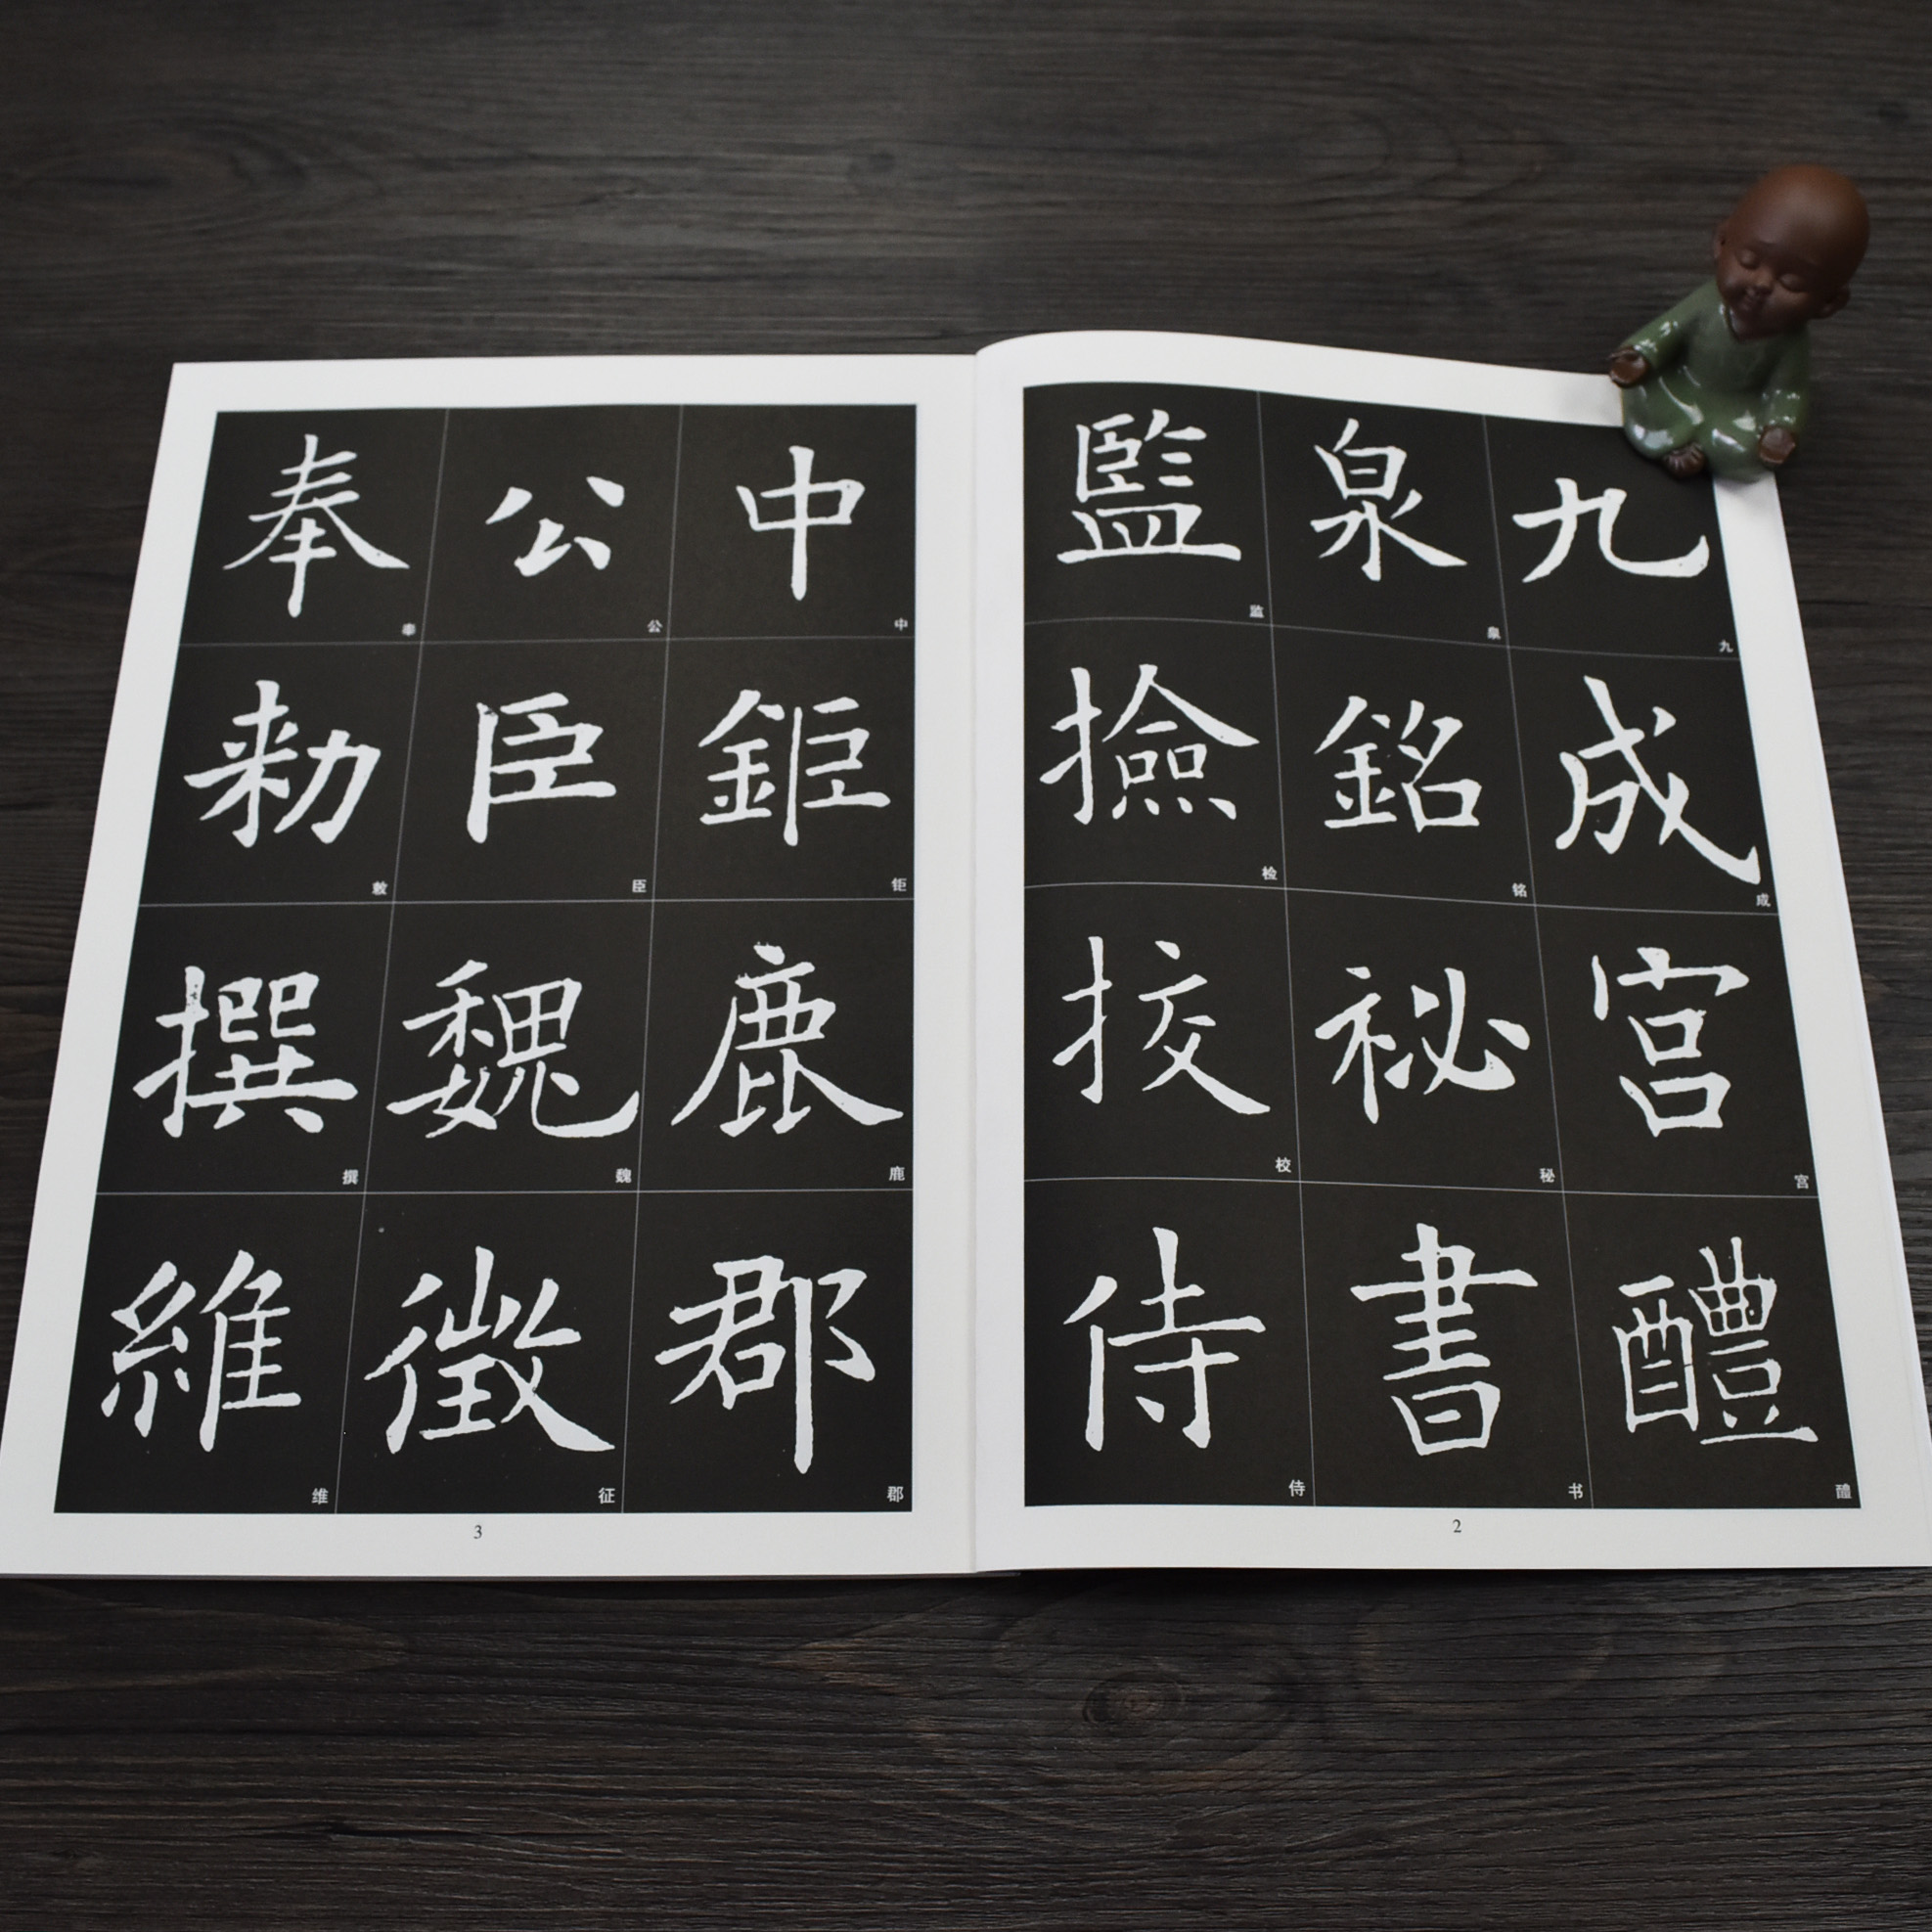 九成宮醴
九成宫醴
泉銘祕書
泉铭秘书
監撿挍侍
监检校侍
2
中鉅鹿郡
中钜鹿郡
公臣魏徵
公臣魏征
奉勑撰維
奉敕撰维
3